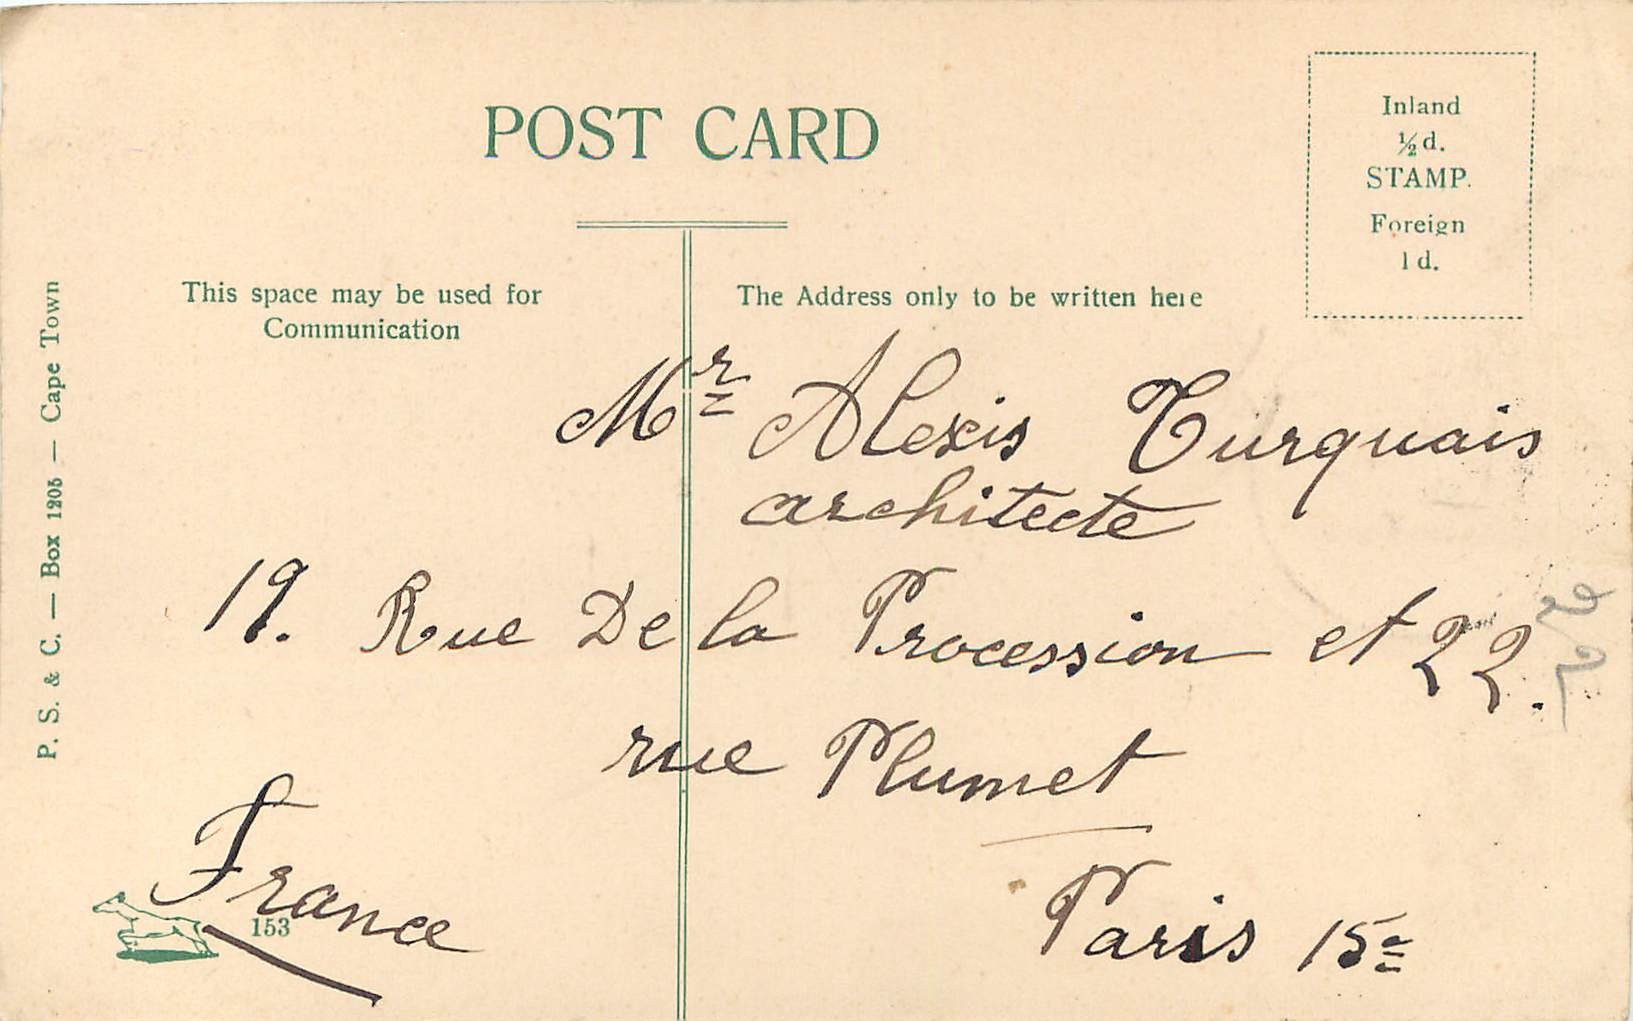 POST CARD
Inland
½d.
STAMP.
Foreign
1d.
This space may be used for
Communication
The Address only to be written here
P. S. & C. — Box 1205 — Cape Town
Mr Alexis Turquais
architecte
19. Rue De la Procession et 22.
rue Plumet
France
Paris 15e
153
22